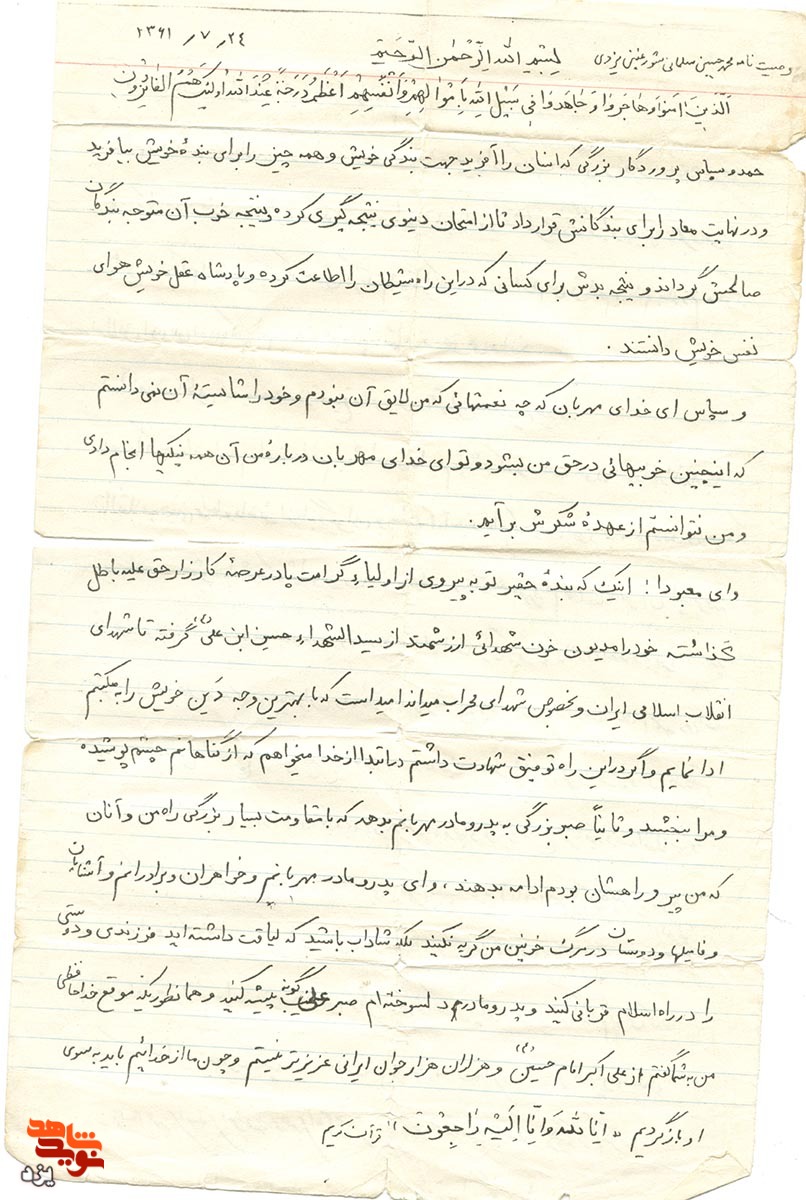 ۱۳۶۱ / ۷ / ۲۴
وصیت نامه محمد حسین سلمانی یزدی
بسم الله الرحمن الرحیم
اَلَّذینَ امَنوا وَ هاجَروُا وَ جاهَدوُا فی سَبیلِ اللهِ بِاَموالِهِمْ وَ اَنْفُسِهِمْ اَعْظَمُ دَرَجَةً عِنْدَ اللهِ اُولئِکَ هُمُ الفائِزوُن
حمد و سپاس پروردگار بزرگی که انسان را آفرید جهت بندگی خویش و همه چیز را برای بندۀ خویش بیافرید
و در نهایت معاد را برای بندگانش قرار داد تا از امتحان دنیوی نتیجه گیری کرده و نتیجه خوب آن متوجه بندگان
صالحش گرداند و نتیجه بدش برای کسانی که در این راه شیطان را اطاعت کرده و پادشاه عقل خویش هوای
نفس خویش دانستند .
و سپاس ای خدای مهربان که چه نعمتهائی که من لایق آن نبودم و خود را شایستۀ آن نمی دانستم
که اینچنین خوبیهائی در حق من بشود و تو ای خدای مهربان دربارۀ من آن همه نیکیها انجام دادی
و من نتوانستم از عهدۀ شکرش برآیم .
و ای معبودا ! اینک که بندۀ حقیر تو به پیروی از اولیاء گرامت پا در عرصۀ کارزار حق علیه باطل
گذاشته خود را مدیون خون شهدائی ارزشمند از سیدالشهداء حسین ابن علی (ع) گرفته تا شهدای
انقلاب اسلامی ایران و بخصوص شهدای محراب میداند امید است که با بهترین وجه دَین خویش را به مکتبم
ادا نمایم و اگر در این راه توفیق شهادت داشتم در ابتدا از خدا میخواهم که از گناهانم چشم پوشیده
و مرا ببخشد و ثانیاً صبر بزرگی به پدر و مادر مهربانم بدهد که با مقاومت بسیار بزرگی راه من و آنان
که من پیرو راهشان بودم ادامه بدهند ، و ای پدر و مادر مهربانم و خواهران و برادرانم و آشنایان
و فامیلها و دوستان در مرگ خونین من گریه نکنید بلکه شاداب باشید که لیاقت داشته اید فرزندی و دوستی
را در راه اسلام قربانی کنید و پدر و مادر دلسوخته ام صبر گونه پیشه کنید و همانطور یکه موقع خداحافظی
من به شما گفتم از علی اکبر امام حسین (ع) و هزاران هزار جوان ایرانی عزیزتر نیستم و چون ما از خدائیم باید به سوی
او بازگردیم " اِنّا لِلّهِ وَ اِنّا اِلَیْهِ راجِعُونَ " قرآن کریم
نوید شاهد
یزد